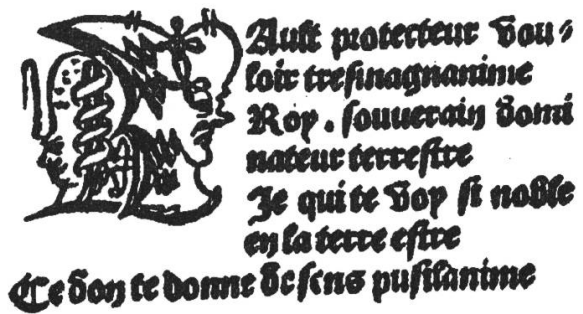 Hault protecteur vou⸗
loir tresmagnanime
Roy. souuerain domi
nateur terrestre
Je qui te voy si noble
en la terre estre
Ce don te donne de sens pusilanime